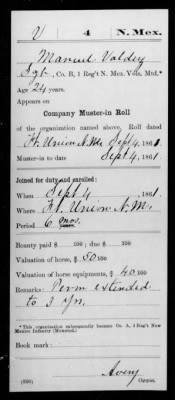 V 4 N. Mex.
Manuel Valdez
Sgt., Co. B, 1 Reg't N. Mex. Vols. Mtd.*
Age 24 years.
Appears on
Company Muster-in Roll
of the organization named above. Roll dated
Ft. Union N.M., Sept 4, 1861.
Muster-in to date Sept 4, 1861.
Joined for duty and enrolled:
When Sept 4, 1861.
Where Ft. Union N.M.
Period 6 mos. years.
Bounty paid $ 100; due $ 100
Valuation of horse, $ 50 100
Valuation of horse equipments, $ 40 100
Remarks: Term extended
to 3 yrs.
*This organization subsequently became Co. A, 1 Reg't New
Mexico Infantry (Mounted.)
Book mark:
Avery
(360) Copyist.